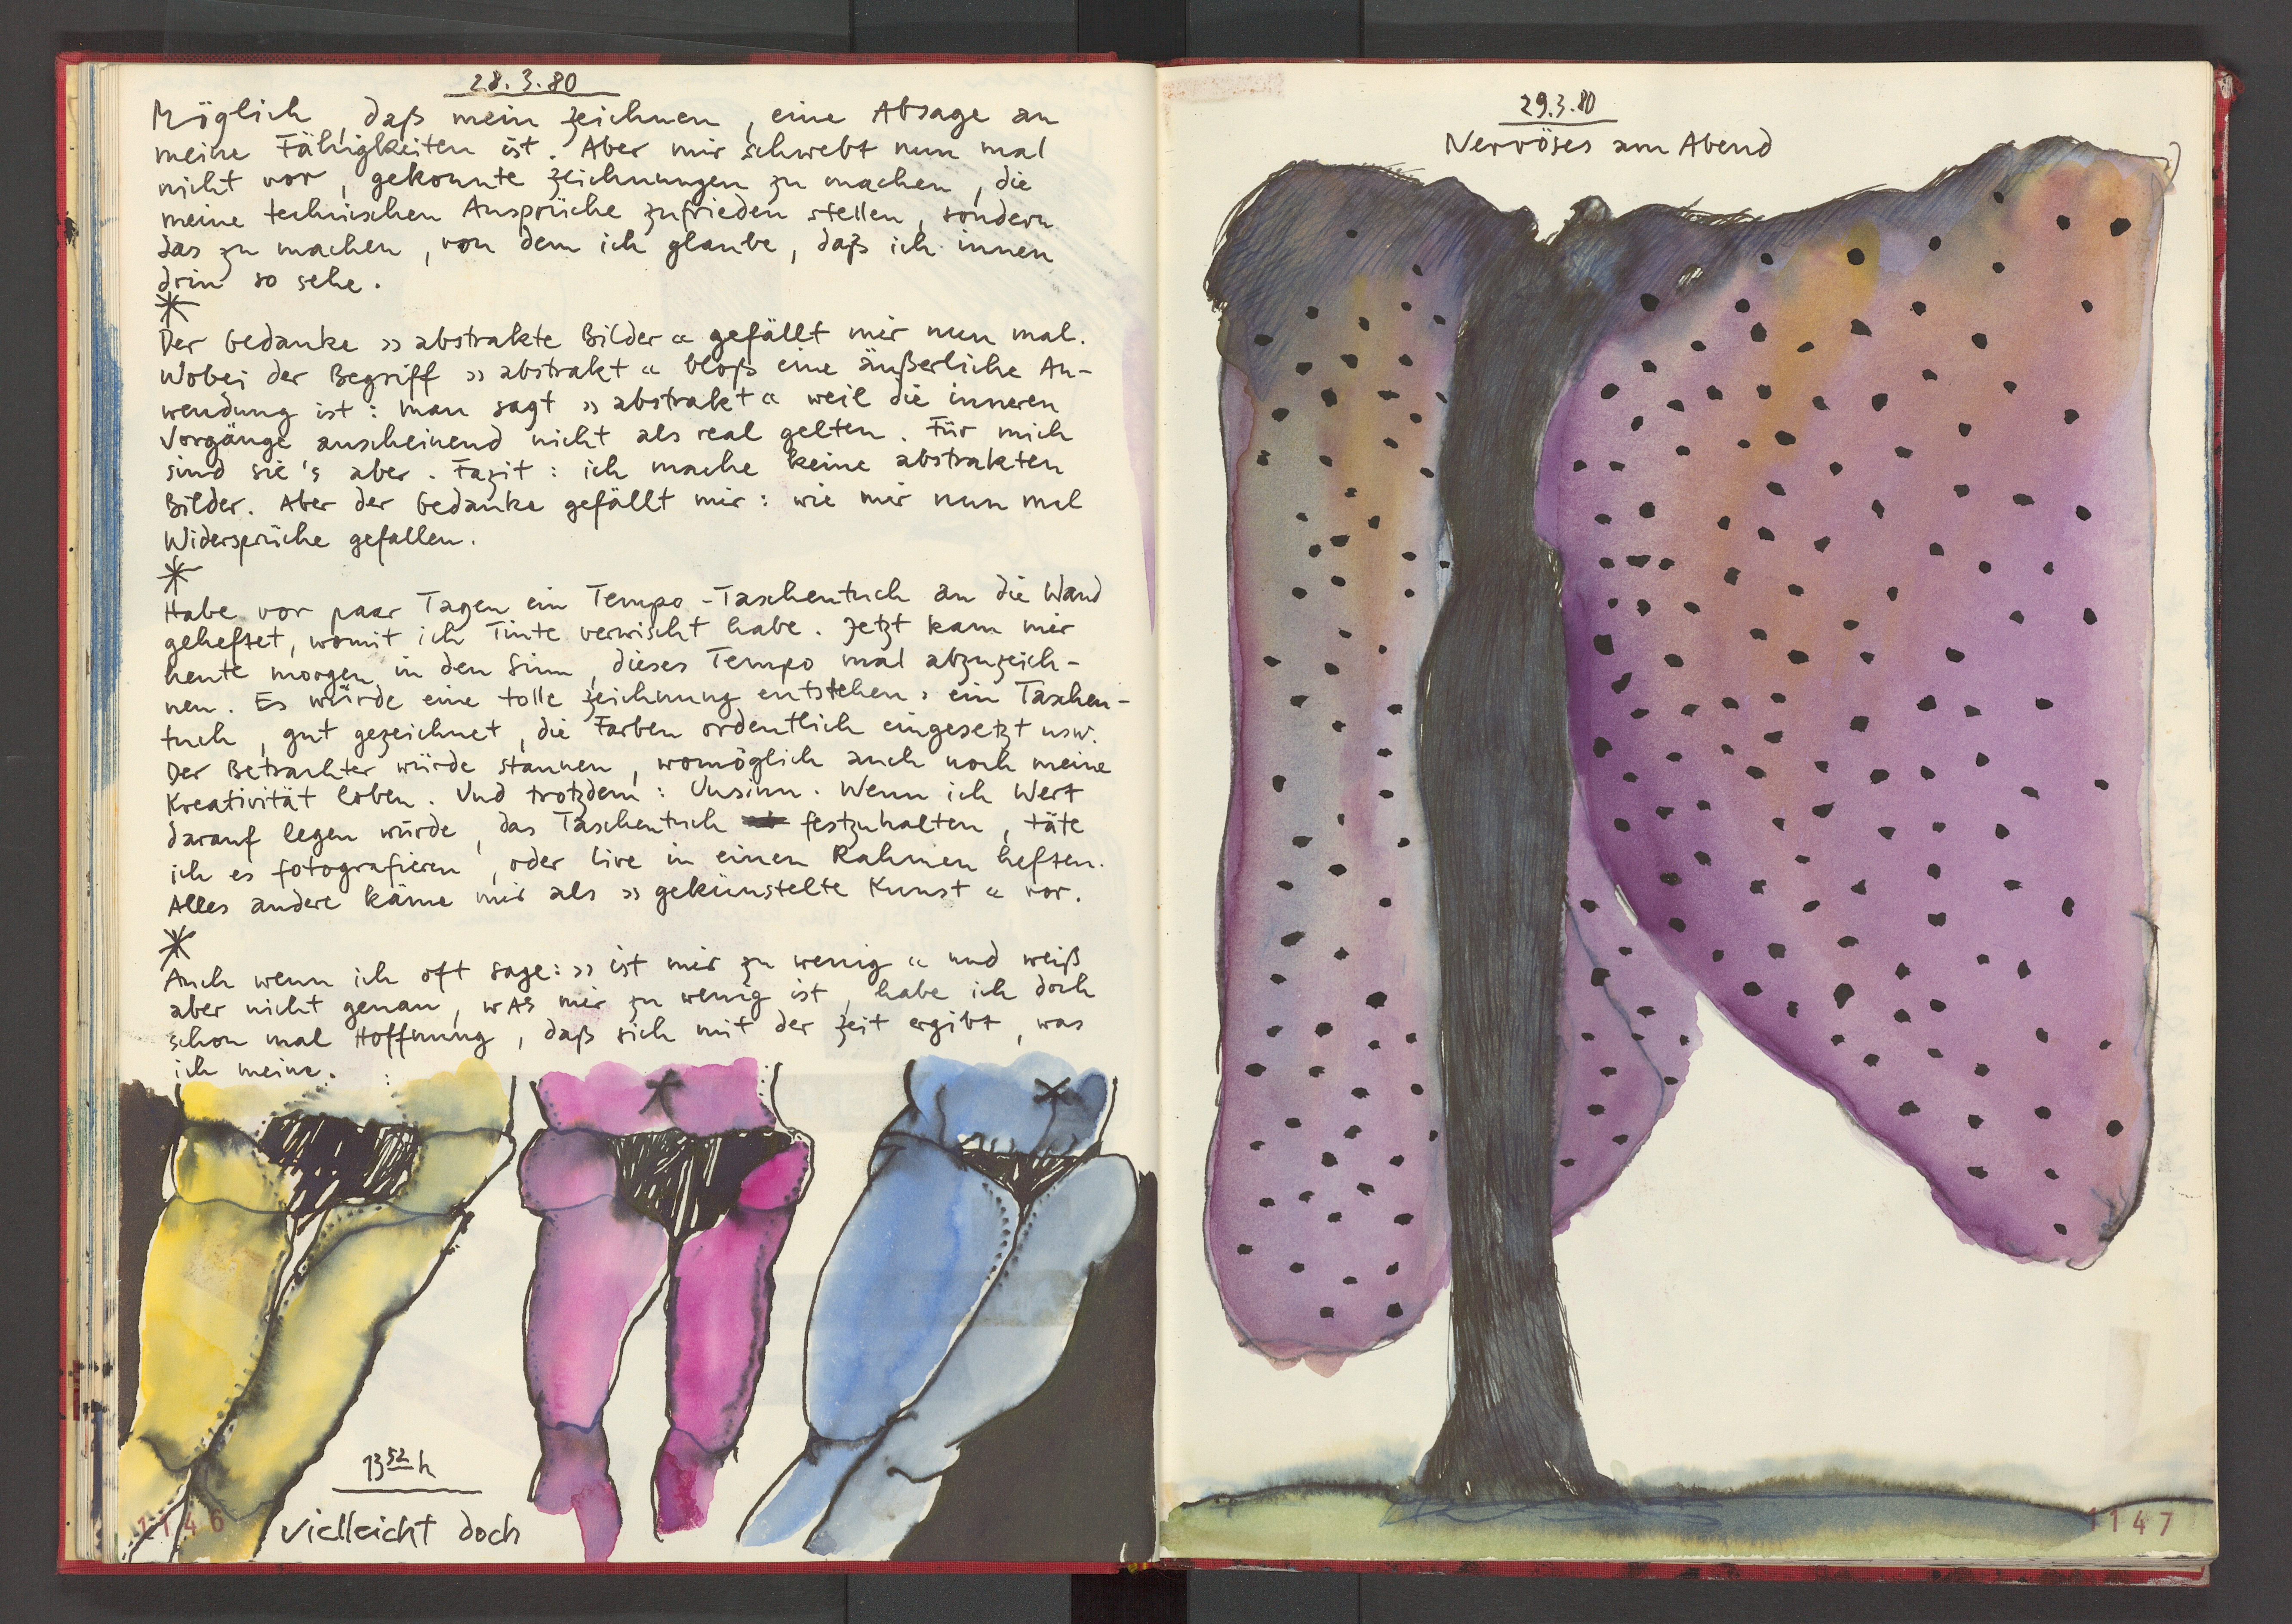 28.3.80
Möglich, daß mein Zeichnen, eine Absage an
meine Fähigkeiten ist. Aber mir schwebt nun mal
nicht vor, gekonnte Zeichnungen zu machen, die
meine technischen Ansprüche zufrieden stellen, sondern
das zu machen, von dem ich glaube, daß ich innen
drin so sehe.
*
Der Gedanke »abstrakte Bilder« gefällt mir nun mal.
Wobei der Begriff »abstrakt« bloß eine äußerliche An-
wendung ist: man sagt »abstrakt« weil die inneren
Vorgänge anscheinend nicht als real gelten. Für mich
sind sie's aber. Fazit: ich mache keine abstrakten
Bilder. Aber der Gedanke gefällt mir: wie mir nun mal
Widersprüche gefallen.
*
Habe vor paar Tagen ein Tempo-Taschentuch an die Wand
geheftet, womit ich Tinte verwischt habe. Jetzt kam mir
heute morgen in den Sinn, dieses Tempo mal abzuzeich-
nen. Es würde eine tolle Zeichnung entstehen, ein Taschen-
tuch, gut gezeichnet, die Farben ordentlich eingesetzt usw.
Der Betrachter würde staunen, womöglich auch noch meine
Kreativität loben. Und trotzdem: Unsinn. Wenn ich Wert
darauf legen würde, das Taschentuch festzuhalten, täte
ich es fotografieren, oder live in einen Rahmen heften.
Alles andere käme mir als »gekünstelte Kunst« vor.
*
Auch wenn ich oft sage: »ist mir zu wenig« und weiß
aber nicht genau, was mir zu wenig ist, habe ich doch
schon mal Hoffnung, daß sich mit der Zeit ergibt, was
ich meine.
13 52 h
vielleicht doch
1146
29.3.80
Nervöses am Abend
1147